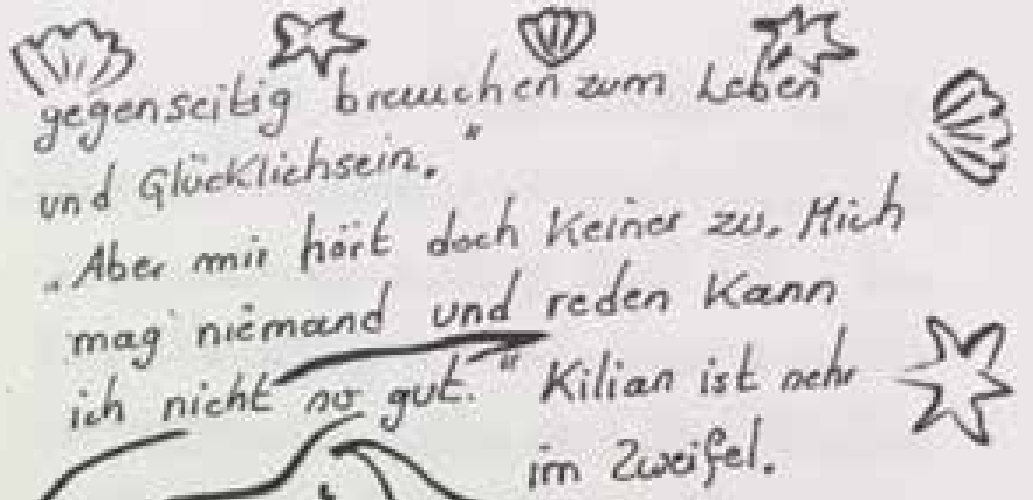 gegenseitig brauchen zum Leben
und Glücklichsein."
"Aber mir hört doch keiner zu. Mich
mag niemand und reden kann
ich nicht so gut." Kilian ist sehr
im Zweifel.